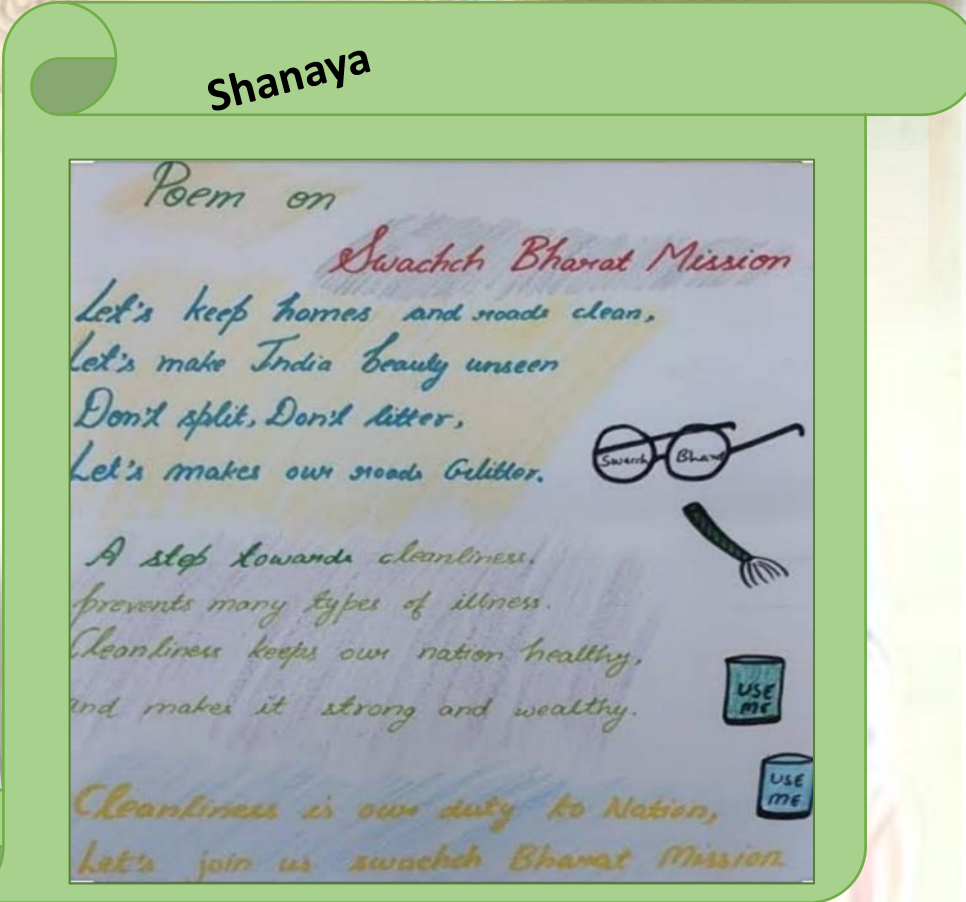 Shanaya
Poem on
Swachch Bharat Mission
Let's keep homes and roads clean,
Let's make India beauty unseen
Don't split, Don't litter,
Let's makes our roads Gelitter.
Swacch Bharat
A step towards cleanliness.
prevents many types of illness.
Cleanliness keeps our nation healthy,
and makes it strong and wealthy.
USE
ME
USE
ME
Cleanliness is our duty to Nation,
Let's join us swachch Bharat Mission